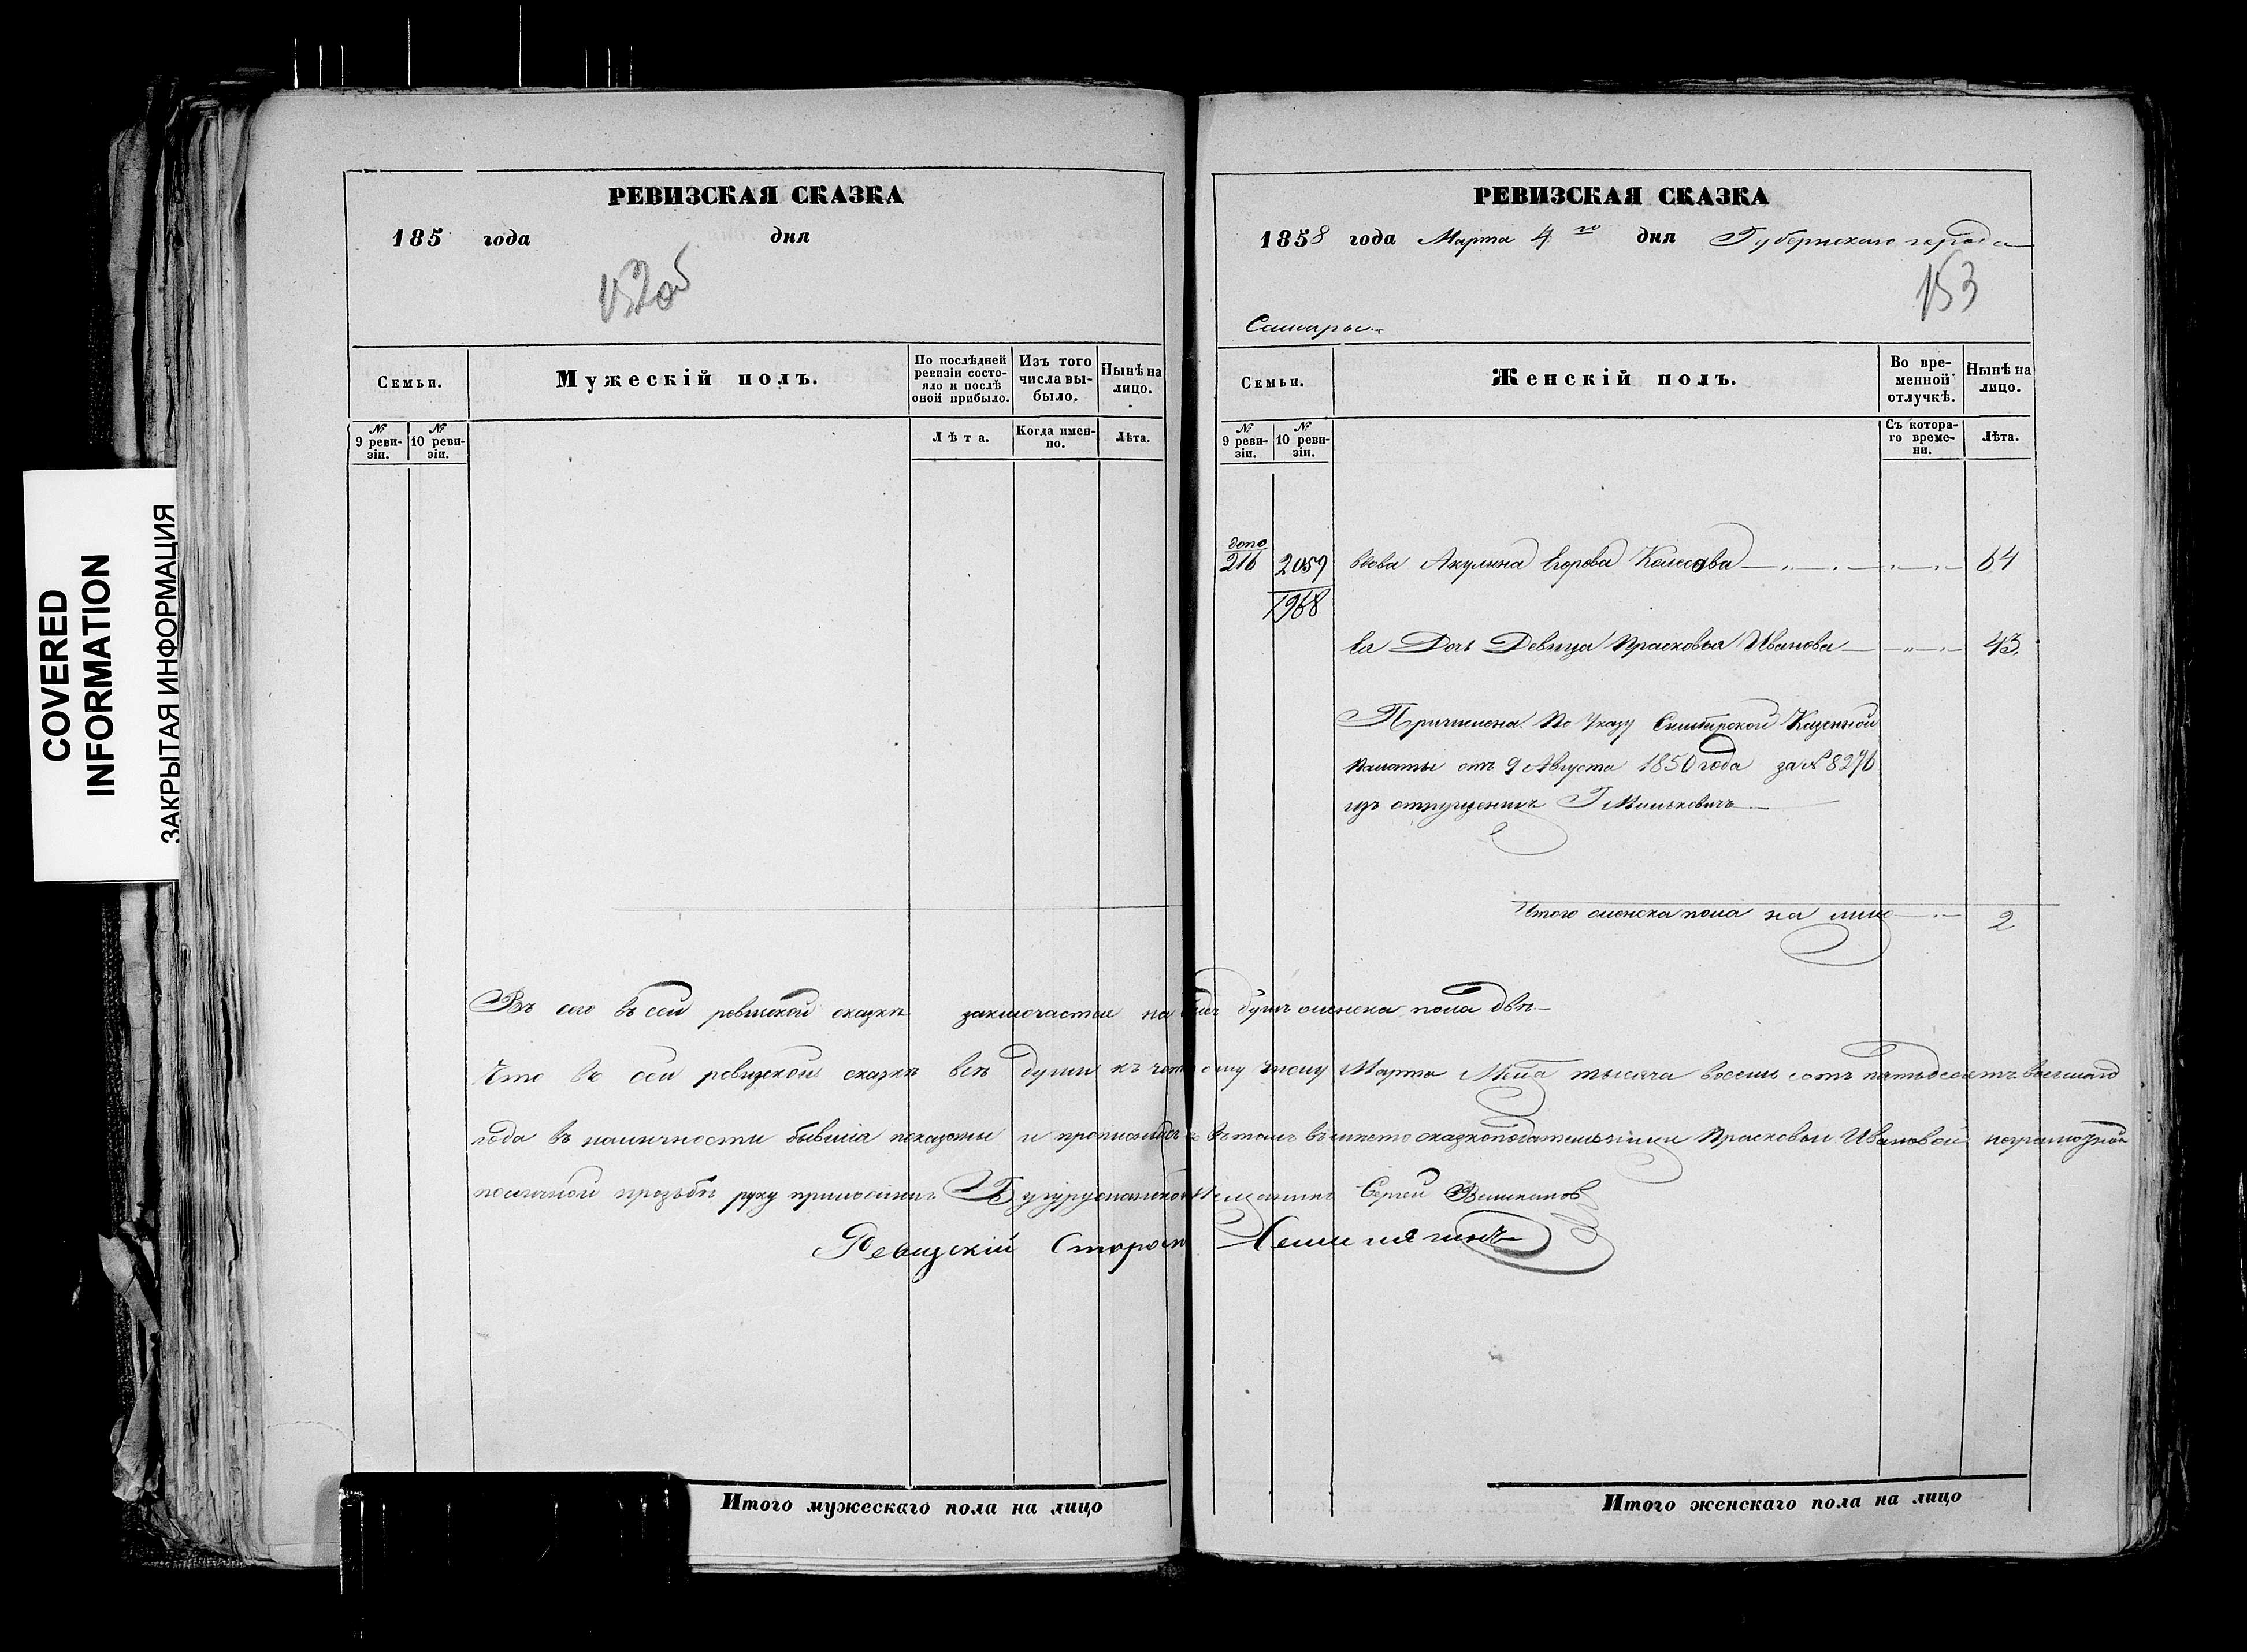 COVERED
INFORMATION
ЗАКРЫТАЯ ИНФОРМАЦИЯ
РЕВИЗСКАЯ СКАЗКА
185 года дня
152об
Семьи.
Мужескій полъ.
По послѣдней ревизіи состояло и послѣ оной прибыло.
Изъ того числа выбыло.
Нынѣ на лицо.
№ 9 ревизіи.
№ 10 ревизіи.
Лѣта.
Когда именно.
Лѣта.
РЕВИЗСКАЯ СКАЗКА
1858 года Марта 4го дня Губернскаго города
153
Самары
Семьи.
Женскій полъ.
Во временной отлучкѣ.
Нынѣ на лицо.
№ 9 ревизіи.
№ 10 ревизіи.
Съ котораго времени.
Лѣта.
допо 216 2059 вдова Акулина Егорова Колесова 64
1968
Ея Дочь Девица Прасковья Иванова 43
Причислена по Указу Симбирской Казенной
палаты отъ 9 Августа 1850 года за №
изъ отпущеныхъ Г
Итого женска пола на лицо 2
въ сей ревиской сказкѣ заключается на душъ женска пола двѣ
Что въ сей ревизской сказкѣ всѣ души къ Марта тысяча восемь сотъ пятьдесятъ
года въ наличности бывшія показаны и въ томъ вместо сказкоподательницы Прасковьи Ивановой неграмотной
по личной прозьбѣ руку приложилъ Бугурусланской мещанинъ Сергей
Ревизскій Староста
Итого мужескаго пола на лицо
Итого женскаго пола на лицо